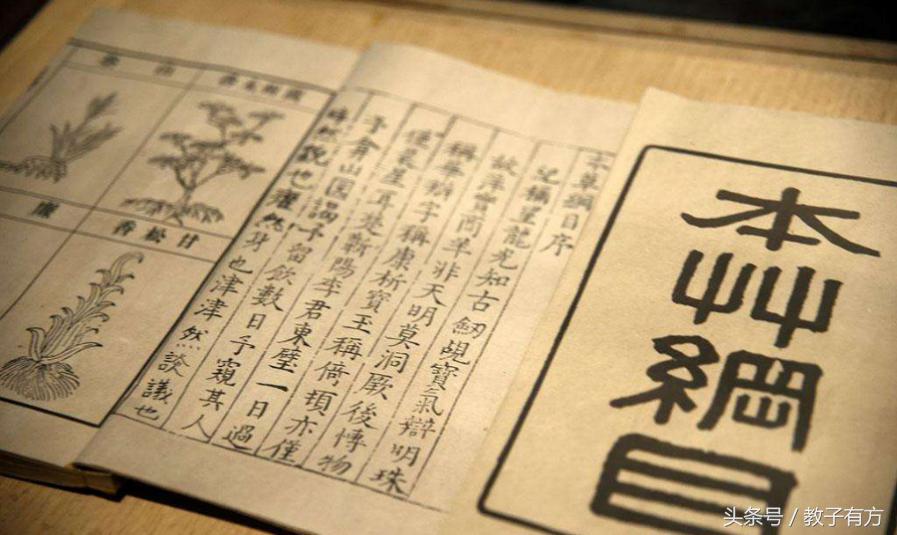 本艸綱目
本草綱目序
稱望龍光知古劒覘寶氣辯明珠
故萍實商羊非天明莫洞厥後博物
稱華辯字稱康析寶玉稱倚頓亦僅
僅晨星耳楚蘄陽李君東璧一日過
予弇山園謁予留飲數日予窺其人
睟然貌也癯然身也津津然談議也
甘松香
头条号 / 教子有方